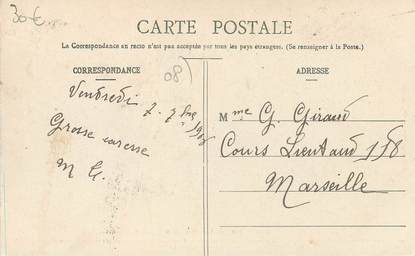 30€
CARTE POSTALE
La Correspondance au recto n'est pas acceptée par tous les pays étrangers. (Se renseigner à la Poste.)
CORRESPONDANCE
08
ADRESSE
Vendredi 7. 7bre
Grosse caresse
M G.
Mme G. Giraud
Cours Lieutaud 118
Marseille